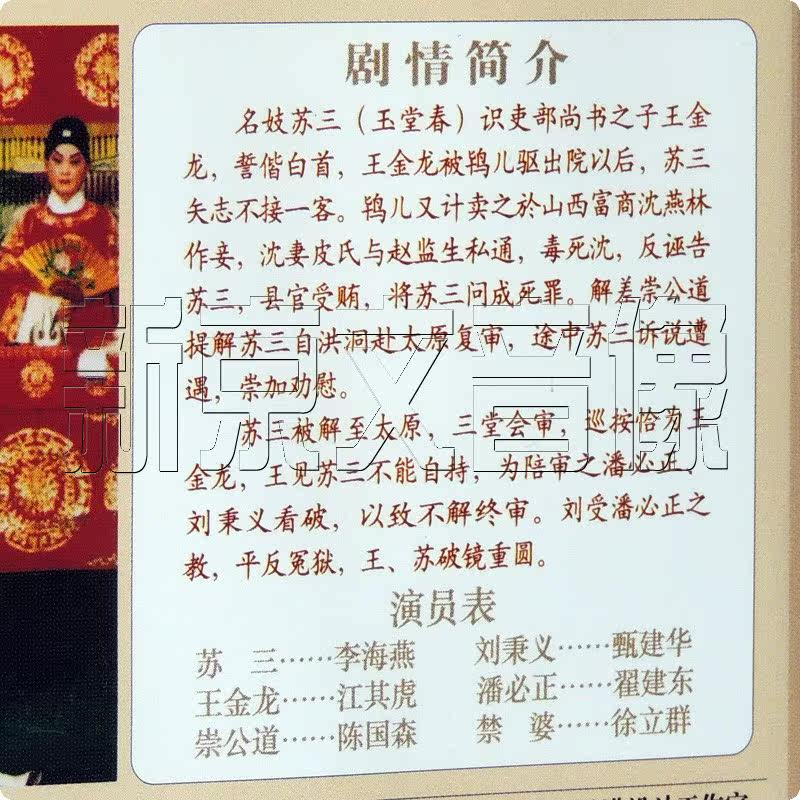 剧情简介
名妓苏三（玉堂春）识吏部尚书之子王金
龙，誓偕白首，王金龙被鸨儿驱出院以后，苏三
矢志不接一客。鸨儿又计卖之於山西富商沈燕林
作妾，沈妻皮氏与赵监生私通，毒死沈，反诬告
苏三，县官受贿，将苏三问成死罪。解差崇公道
提解苏三自洪洞赴太原复审，途中苏三诉说遭
遇，崇加劝慰。
苏三被解至太原，三堂会审，巡按恰为王
金龙，王见苏三不能自持，为陪审之潘必正、
刘秉义看破，以致不解终审。刘受潘必正之
教，平反冤狱，王、苏破镜重圆。
演员表
苏 三……李海燕 刘秉义……甄建华
王金龙……江其虎 潘必正……翟建东
崇公道……陈国森 禁 婆……徐立群
新京文音像